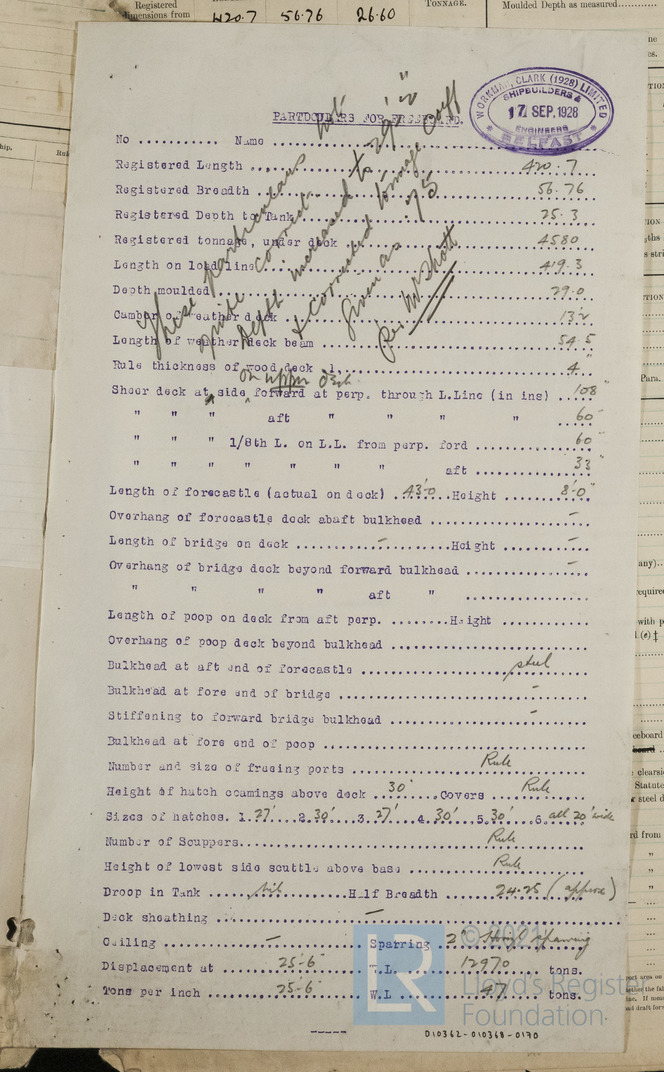 Registered
dimensions from
420.7 56.76 26.60
TONNAGE.
Moulded Depth as measured
WORKMAN, CLARK (1928) LIMITED
SHIPBUILDERS &
17 SEP. 1928
ENGINEERS
BELFAST
PARTICULARS FOR FREEBOARD.
No ........... Name
Registered Length 420.7
Registered Breadth 56.76
Registered Depth to Tank 25.3
Registered tonnage, under deck 4580
Length on load line 419.3
Depth moulded 29.0
Camber of weather deck 13½
Length of weather deck beam 54.5
Rule thickness of wood deck 4"
on upper deck
Sheer deck at side forward at perp. through L.Line (in ins) 108"
" " " aft " " " 60"
" " " 1/8th L. on L.L. from perp. ford 60"
" " " " " " " aft 33"
Length of forecastle (actual on deck) 43'.0 Height 8'.0"
Overhang of forecastle deck abaft bulkhead -
Length of bridge on deck - Height -
Overhang of bridge deck beyond forward bulkhead -
" " " " aft "
Length of poop on deck from aft perp. Height
Overhang of poop deck beyond bulkhead
Bulkhead at aft end of forecastle steel
Bulkhead at fore end of bridge -
Stiffening to forward bridge bulkhead -
Bulkhead at fore end of poop
Number and size of freeing ports Rule
Height of hatch coamings above deck 30" Covers Rule
Sizes of hatches. 1. 27' 2. 30' 3. 27' 4. 30' 5. 30' 6. all 20' wide
Number of Scuppers Rule
Height of lowest side scuttle above base Rule
Droop in Tank nil Half Breadth 24.25 (approx)
Deck sheathing —
Ceiling — Sparring 2"
Displacement at 25'-6" W.L. 12970 tons.
Tons per inch 25'-6" W.L 47 tons.
These particulars
quite correct
Depth increased to 29'
& corrected tonnage coefft
given as .75
© 2021
LR
Lloyd's Regist
Foundation
010362-010368-0170